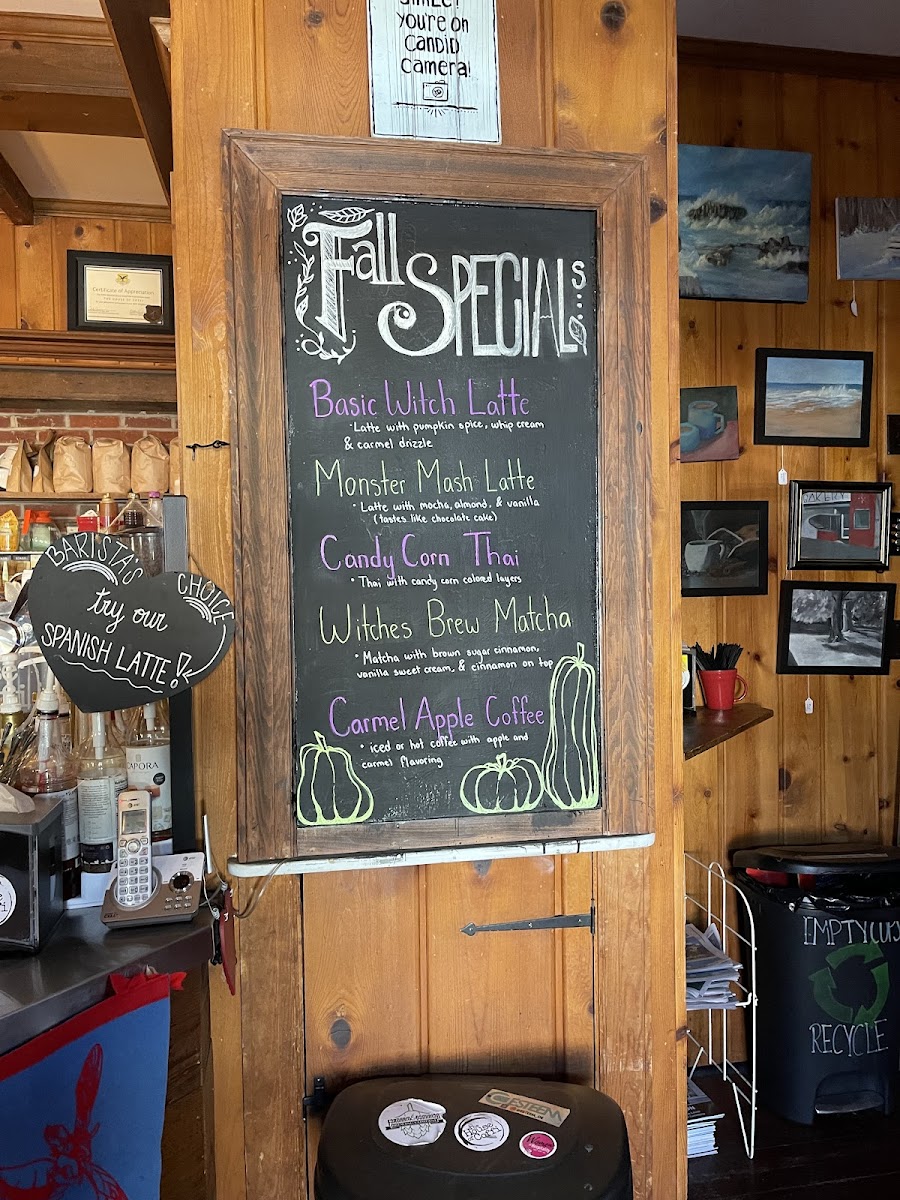 SMILE!
you're on
Candid
Camera!
Fall SPECIALS...
Basic Witch Latte
• Latte with pumpkin spice, whip cream
& carmel drizzle
Monster Mash Latte
• Latte with mocha, almond, & vanilla
(tastes like chocolate cake)
Candy Corn Thai
• Thai with candy corn colored layers
Witches Brew Matcha
• Matcha with brown sugar cinnamon,
vanilla sweet cream, & cinnamon on top
Carmel Apple Coffee
• iced or hot coffee with apple and
carmel flavoring
BARISTA'S CHOICE
try our
SPANISH LATTE!
Certificate of Appreciation
CAPORA
at&t
EMPTY CUPS
RECYCLE